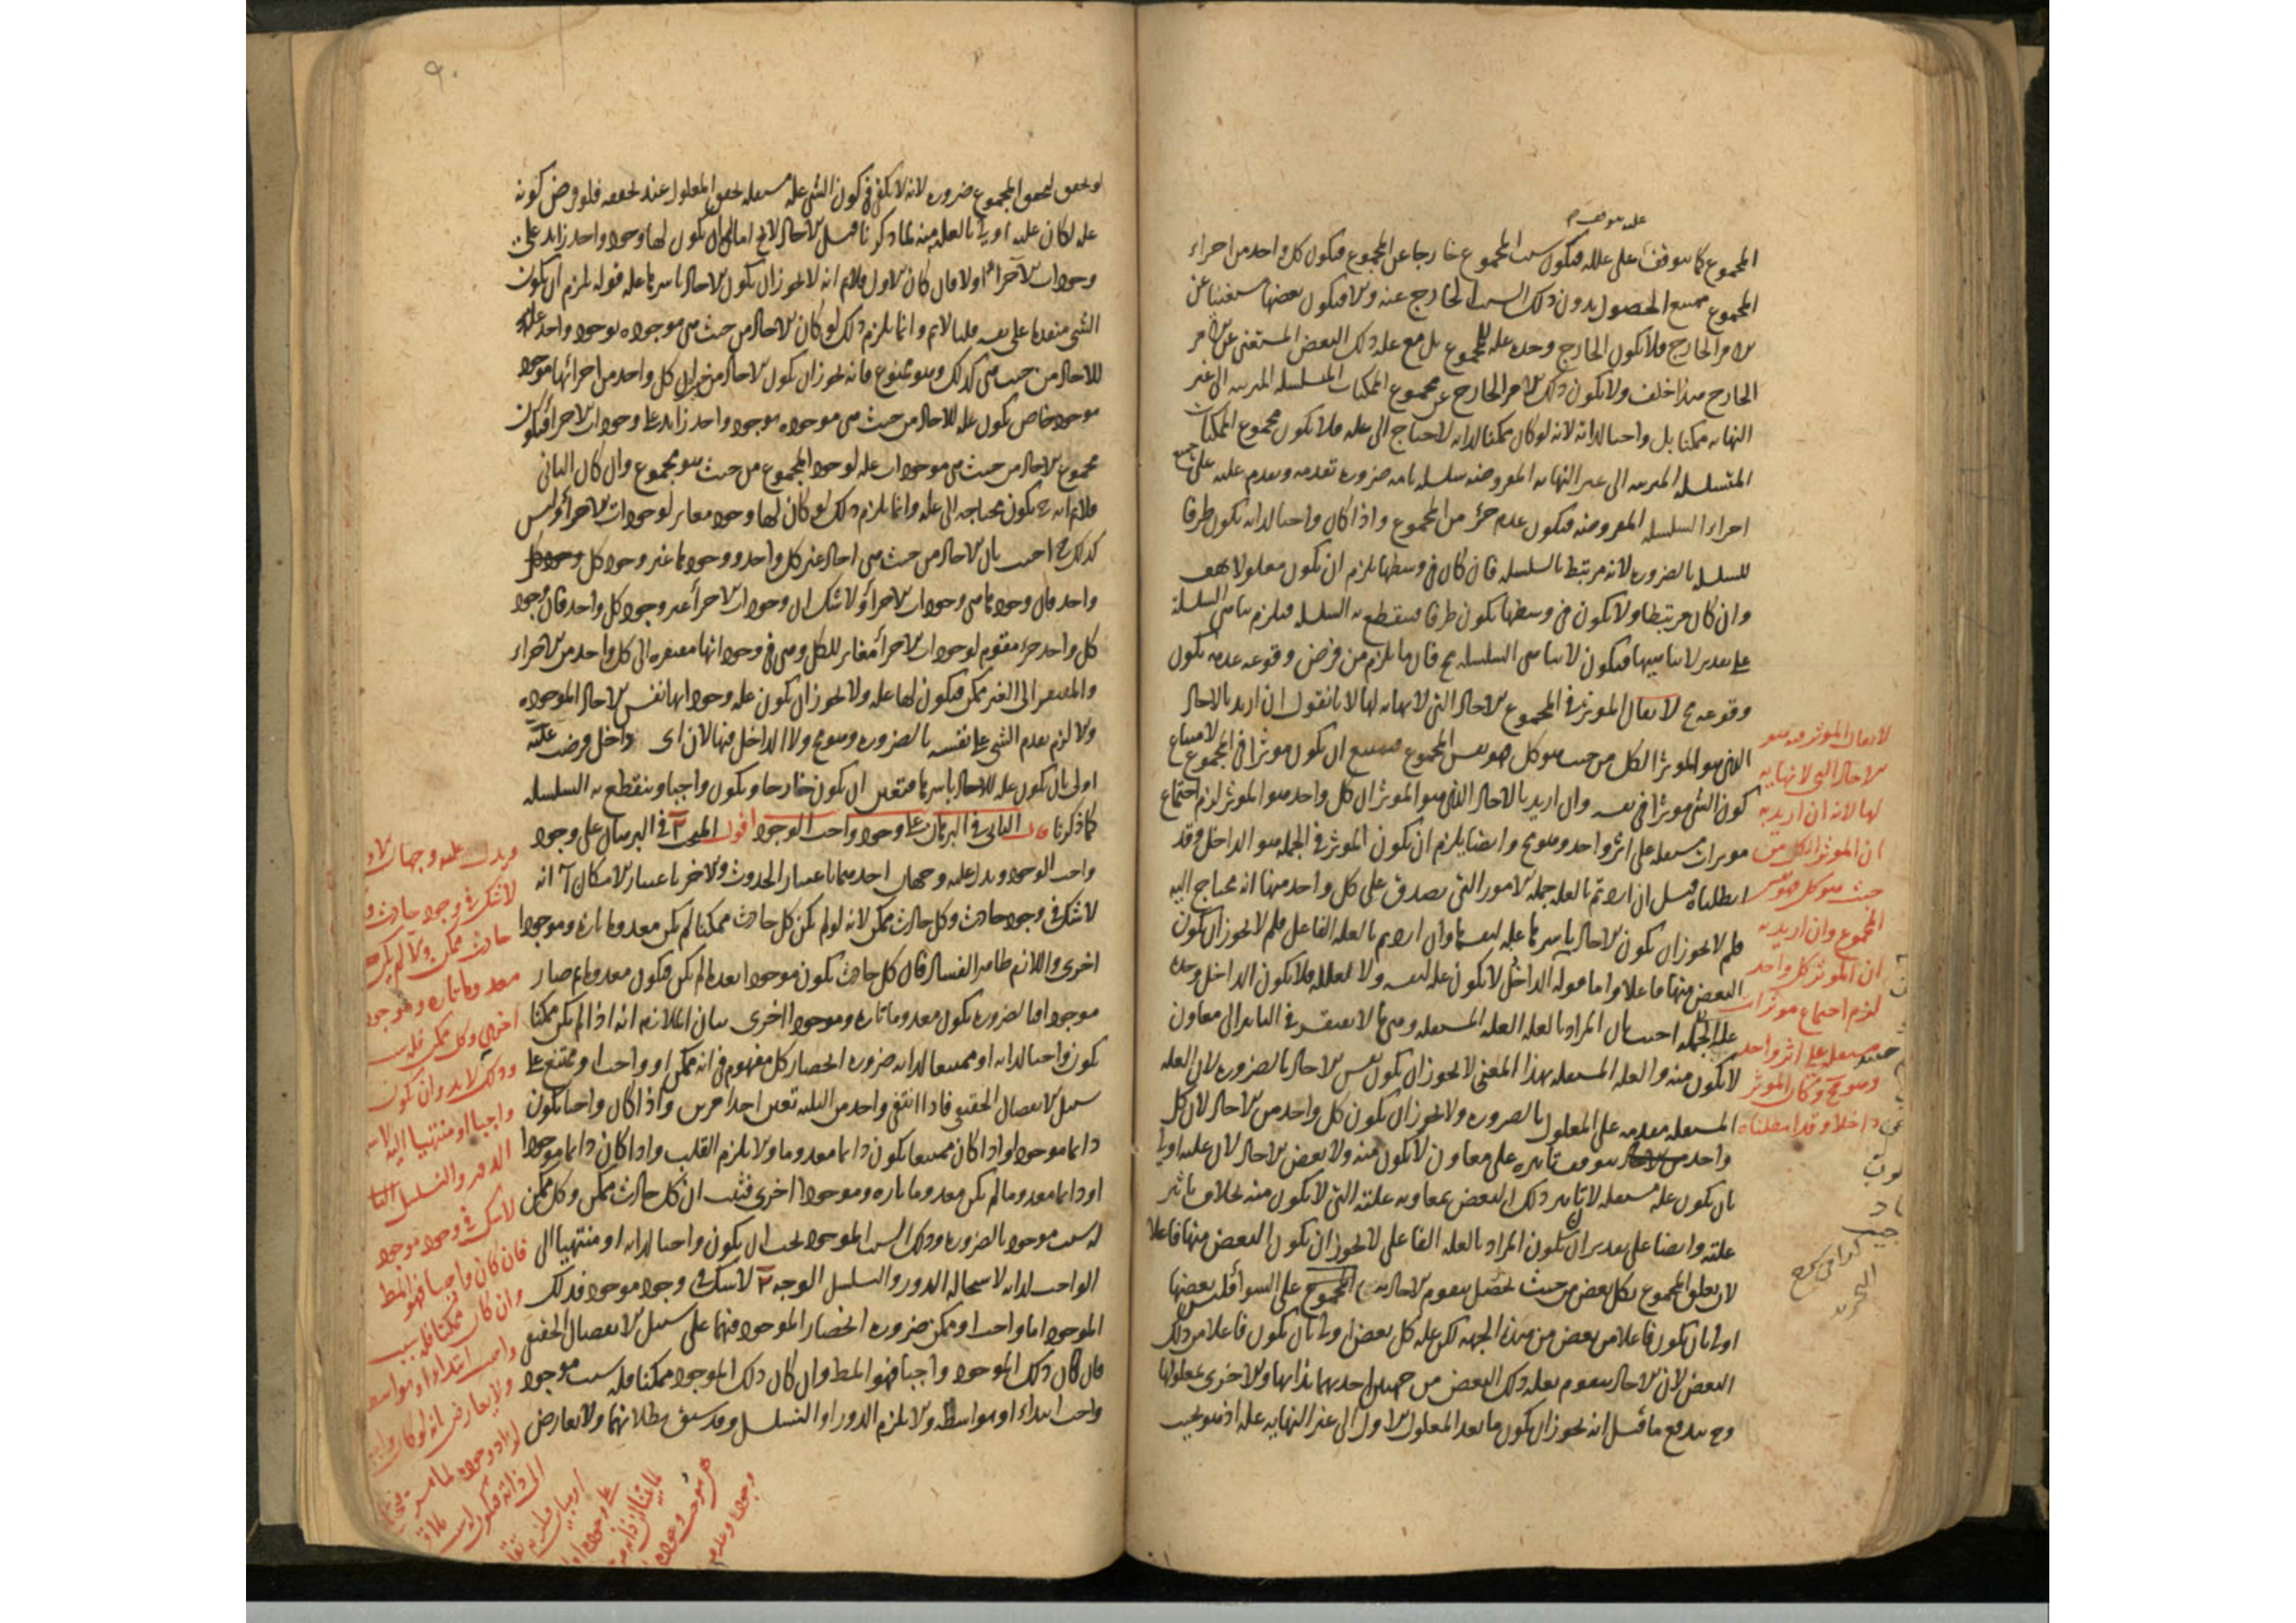 المجموع كما يتوقف على علله فيكون سبب المجموع خارجا عن المجموع فيكون كل واحد من اجزاء
المجموع ممتنع الحصول بدون ذلك السبب الخارج عنه والا فيكون بعضها مستغنيا عن
الامر الخارج فلا يكون الخارج وحده علة للمجموع بل مع علة ذلك البعض المستغنى عن الامر
الخارج هذا خلف ولا يكون ذلك الامر الخارج عن مجموع الممكنات المتسلسلة المترتبة الى غير
النهاية ممكنا بل واجبا لذاته لانه لو كان ممكنا لذاته لاحتاج الى علة فلا يكون مجموع الممكنات
المتسلسلة المترتبة الى غير النهاية المفروضة سلسلة تامة ضرورة تقدمه وتقدم علته على جميع
اجزاء السلسلة المفروضة فيكون عدم جزء من المجموع واذا كان واجبا لذاته يكون طرفا
للسلسلة بالضرورة لانه مرتبط بالسلسلة فان كان فى وسطها يلزم ان يكون معلولا
وان كان مرتبطا ولا يكون فى وسطها يكون طرفا فينقطع به السلسلة فيلزم تناهى السلسلة
على تقدير لا تناهيها فيكون لا تناهى السلسلة مح فان ما يلزم من فرض وقوعه عدمه يكون
وقوعه مح لا يقال الموثر فى المجموع الاحاد التى لا نهاية لها لانا نقول ان اريد بالاحاد
التى هو الموثر الكل من حيث هو كل فهو نفس المجموع فيمتنع ان يكون موثرا فى المجموع لامتناع
كون الشى موثرا فى نفسه وان اريد بالاحاد التى هو الموثر ان كل واحد هو الموثر لزم اجتماع
موثرات مستقلة على اثر واحد وهو مح وايضا يلزم ان يكون الموثر فى الجملة هو الداخل وقد
ابطلناه قيل ان اردتم بالعلة جملة الامور التى يصدق على كل واحد منها انه يحتاج اليه
فلم لا يجوز ان يكون الاحاد باسرها علة لنفسها وان اردتم بالعلة الفاعل فلم لا يجوز ان يكون
البعض منها فاعلا واما قوله الداخل لا يكون علة لنفسه ولا لعلله فلا يكون الداخل وحده
علة الجملة اجيب بان المراد بالعلة العلة المستقلة وهى ما لا يفتقر فى التاثير الى معاون
لا يكون منه والعلة المستقلة بهذا المعنى لا يجوز ان يكون نفس الاحاد بالضرورة لان العلة
المستقلة متقدمة على المعلول بالضرورة ولا يجوز ان يكون كل واحد من الاحاد لان كل
واحد يتوقف تاثيره على معاون لا يكون منه ولا بعض الاحاد لان علته اولى
بان يكون علة مستقلة لا تاثير ذلك البعض بمعاونة علته التى لا يكون منه بخلاف تاثير
علته وايضا على تقدير ان يكون المراد بالعلة الفاعلى لا يجوز ان يكون البعض منها فاعلا
لان تعلق المجموع بكل بعض من حيث تحصل بتقوم الاحاد به المجموع على السواء فليس بعضها
اولى بان يكون فاعلا من بعض من هذه الجهة لكن علة كل بعض اولى بان يكون فاعلا من ذلك
البعض لان الاحاد يتقوم بعلة ذلك البعض من جهتين احديهما بذاتها والاخرى بمعلولها
وح يندفع ما قيل انه يجوز ان يكون ما بعد المعلول الاول الى غير النهاية علة اذ هو بحيث
لا يقال الموثر فيه هو
الاحاد التى لا نهاية
لها لانه ان اريد به
ان الموثر الكل من
حيث هو كل فهو نفس
المجموع وان اريد به
ان الموثر كل واحد
لزم اجتماع موثرات
مستقلة على اثر واحد
وهو مح وكان الموثر
داخلا وقد ابطلناه
لو تحقق تحقق المجموع ضرورة لانه لا يكفى فى كون الشى علة مستقلة تحقق المعلول عند تحققه فلو فرض كونه
علة لكان علته اولى بالعلية منه لما ذكرنا قيل الاحاد لا يخ اما ان يكون لها وجود واحد زايد على
وجودات الاجزاء او لا فان كان الاول فلانم انه لا يجوز ان يكون الاحاد باسرها علة قوله يلزم ان يكون
الشى متقدما على نفسه قلنا لانم وانما يلزم ذلك لو كان الاحاد من حيث هى موجودة بوجود واحد علة
للاحاد من حيث هى كذلك وهو ممنوع فانه يجوز ان يكون الاحاد من حيث ان كل واحد من اجزائها موجود
موجود خاص يكون علة للاحاد من حيث هى موجودة بوجود واحد زايد على وجودات الاجزاء فيكون
مجموع الاحاد من حيث هى موجودات علة لوجود المجموع من حيث هو مجموع وان كان الثانى
فلانم انه ح يكون محتاجة الى علة وانما يلزم ذلك لو كان لها وجود مغاير لوجودات الاجزاء وليس
كذلك اجيب بان الاحاد من حيث هى احاد غير كل واحد ووجودها غير وجود كل
واحد فان وجودها هى وجودات الاجزاء ولا شك ان وجودات الاجزاء غير وجود كل واحد فان وجود
كل واحد جزء مقوم لوجودات الاجزاء مغاير للكل وهى فى وجوداتها مفتقرة الى كل واحد من الاجزاء
والمفتقر الى الغير ممكن فيكون لها علة ولا يجوز ان يكون علة وجوداتها نفس الاحاد الموجودة
والا لزم تقدم الشى على نفسه بالضرورة وهو مح ولا الداخل فيها لان اى داخل فرضت علته
اولى بان يكون علة للاحاد باسرها فتعين ان يكون خارجا ويكون واجبا وينقطع به السلسلة
كما ذكرنا قال الثانى فى البرهان على وجود واجب الوجود اقول المبحث ٢ فى البرهان على وجود
واجب الوجود ويدل عليه وجهان احدهما باعتبار الحدوث والاخر باعتبار الامكان آ انه
لا شك فى وجود حادث وكل حادث ممكن لانه لو لم يكن كل حادث ممكنا لم يكن معدوما تارة وموجودا
اخرى واللازم ظاهر الفساد فان كل حادث يكون موجودا بعد ما لم يكن فيكون معدوما ثم صار
موجودا فبالضرورة يكون معدوما تارة وموجودا اخرى بيان الملازمة انه اذا لم يكن ممكنا
يكون واجبا لذاته او ممتنعا لذاته ضرورة انحصار كل مفهوم فى انه ممكن او واجب او ممتنع على
سبيل الانفصال الحقيقى فاذا انتفى واحد من الثلثة تعين احد الامرين واذا كان واجبا يكون
دائما موجودا واذا كان ممتنعا يكون دائما معدوما والا يلزم القلب واذا كان دائما موجودا
او دائما معدوما لم يكن معدوما تارة وموجودا اخرى فثبت ان كل حادث ممكن وكل ممكن
له سبب موجود بالضرورة وذلك السبب الموجود يجب ان يكون واجبا لذاته او منتهيا الى
الواجب لذاته لاستحالة الدور والتسلسل الوجه ٢ لا شك فى وجود موجود فذلك
الموجود اما واجب او ممكن ضرورة انحصار الموجود فيهما على سبيل الانفصال الحقيقى
فان كان ذلك الموجود واجبا فهو المط وان كان ذلك الموجود ممكنا فله سبب موجود
واجب ابتداء او بواسطة والا يلزم الدور او التسلسل وقد سبق بطلانهما ولا يعارض
ويدل عليه وجهان
لا شك فى وجود حادث
حادث ممكن والا لم يكن
معدوما تارة وموجودا
اخرى وكل ممكن فله سبب
وذلك لا بد وان يكون
واجبا او منتهيا اليه
الدور والتسلسل
لا شك فى وجود موجود
فان كان واجبا فهو المط
وان كان ممكنا فله سبب
واجب ابتداء او بواسطة
ولا يعارض انه لو كان